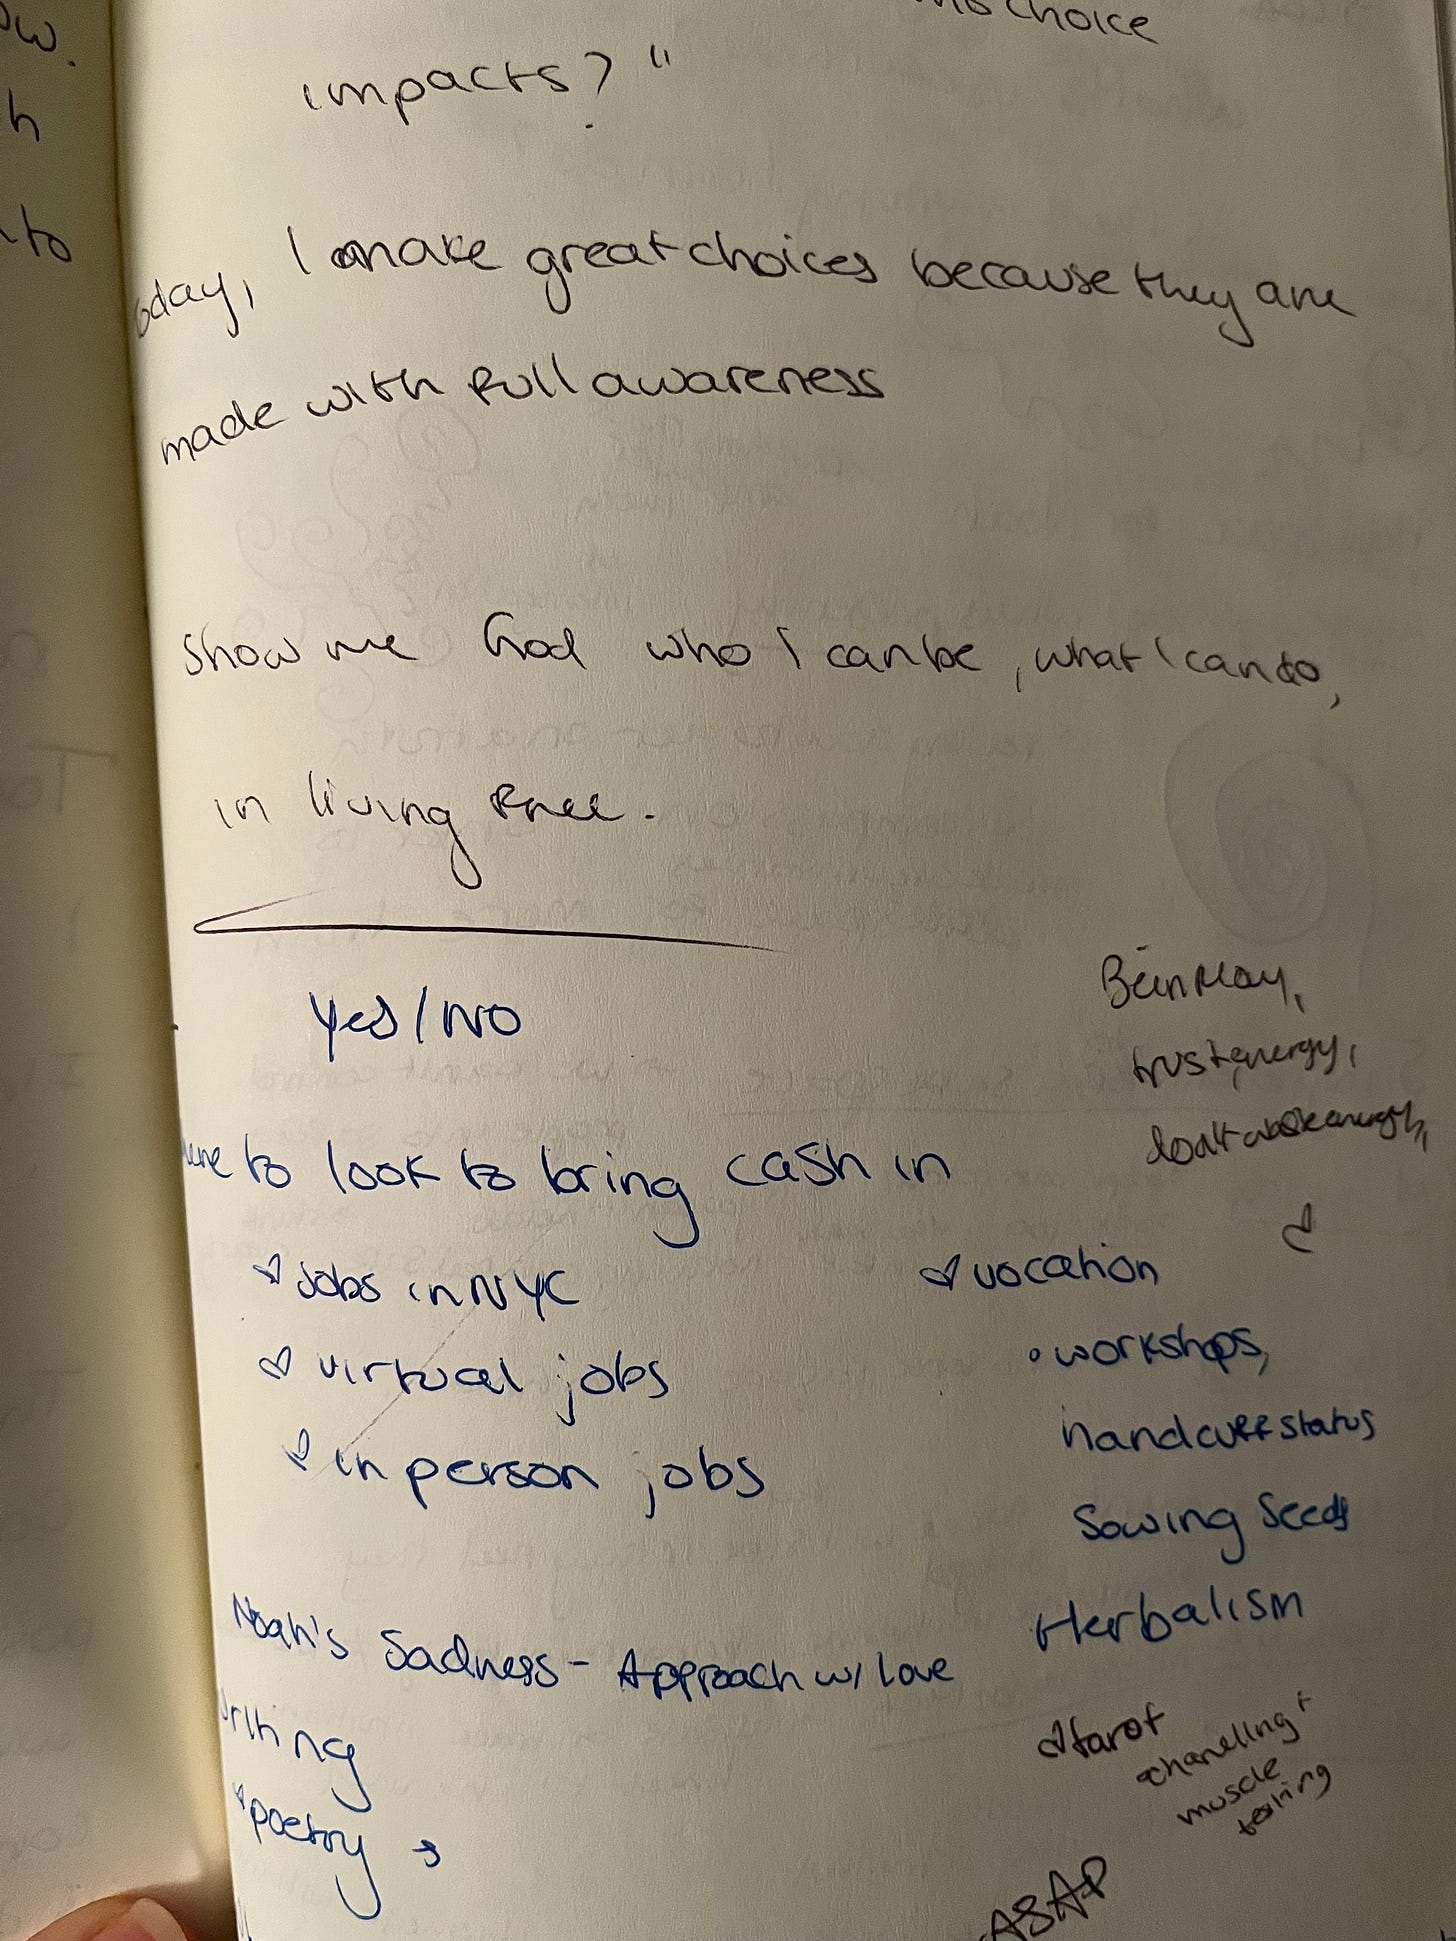 choice
impacts? "
oday, I make great choices because they are
made with full awareness
Show me God who I can be, what I can do,
in living free.
Yes/NO
Be in play,
trust energy,
don't waste energy,
to look to bring cash in
Jobs in NYC
virtual jobs
in person jobs
vocation
• workshops,
handcuff status
Sowing Seeds
Herbalism
Noah's Sadness - Approach w/ Love
writing
poetry →
tarot
chanelling +
muscle
testing
ASAP
ow.
h
to